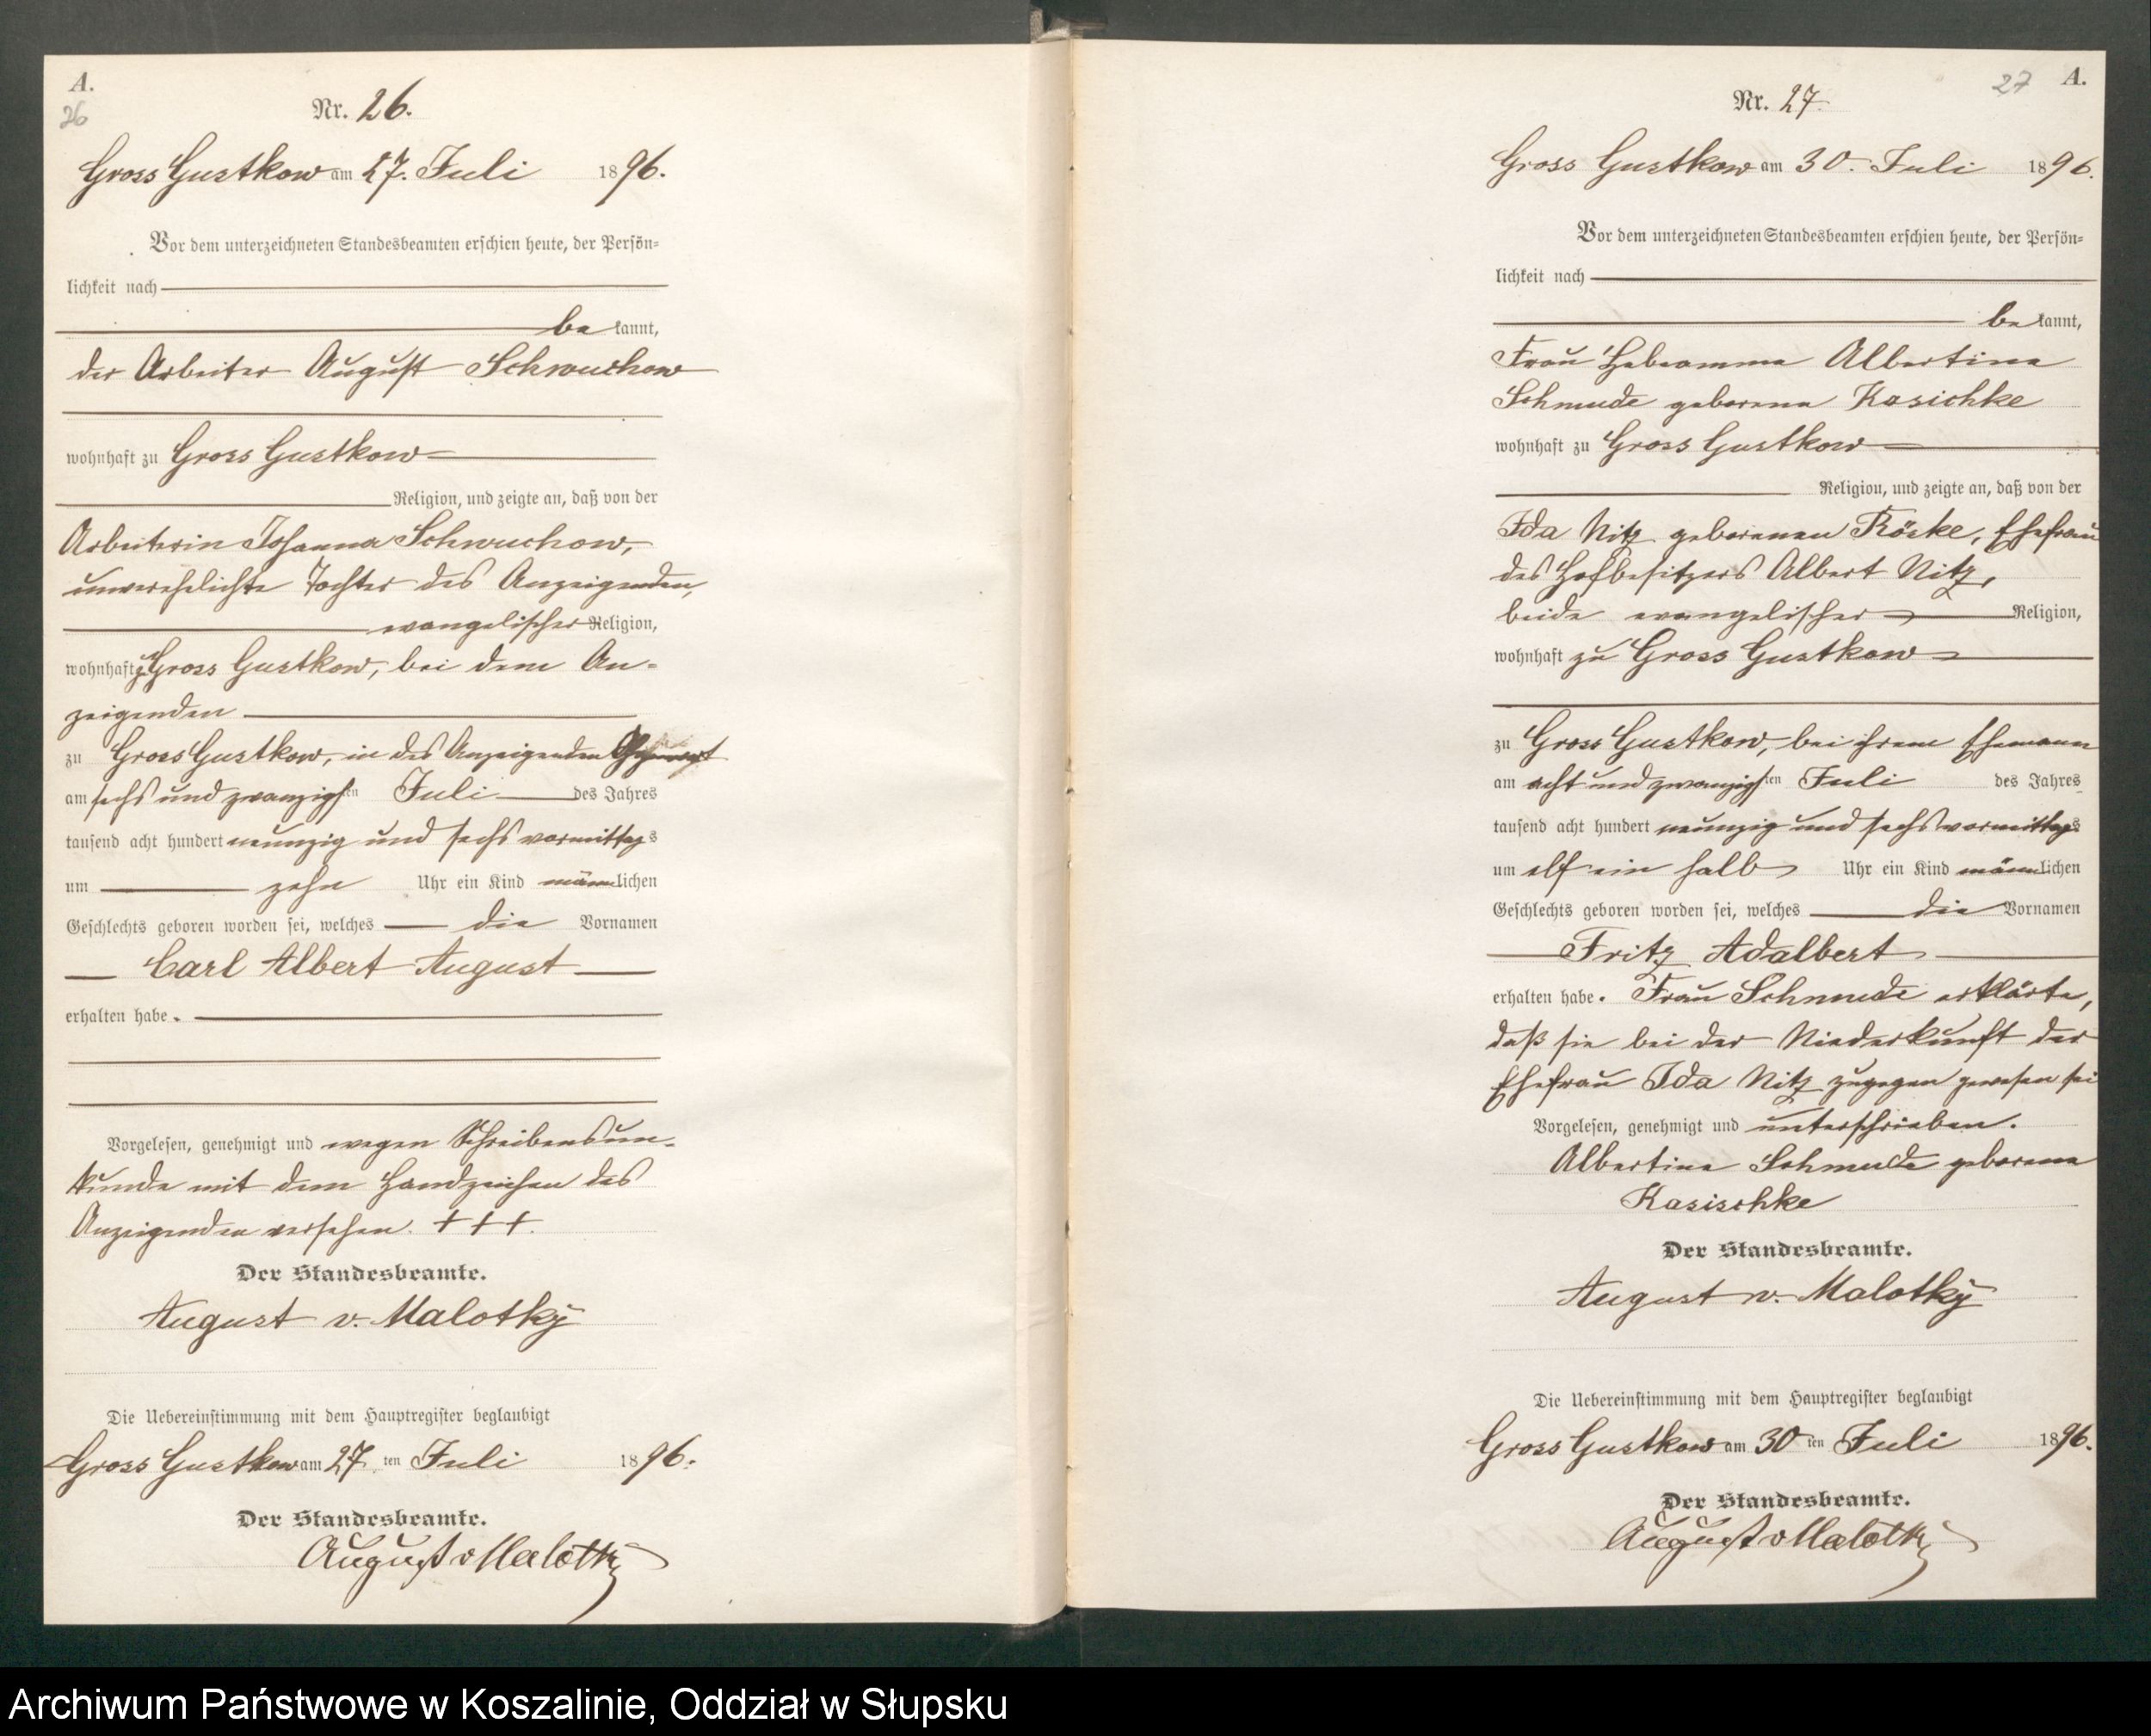 A.
26
Nr. 26.
Gross Gustkow am 27. Juli 1896.
Vor dem unterzeichneten Standesbeamten erschien heute, der Persön=
lichkeit nach
bekannt,
der Arbeiter August Schwuchow
wohnhaft zu Gross Gustkow
Religion, und zeigte an, daß von der
Arbeiterin Johanna Schwuchow,
unverehelichte Tochter des Anzeigenden,
evangelischer Religion,
wohnhaft zu Gross Gustkow, bei dem An-
zeigenden
zu Gross Gustkow, in des Anzeigenden Gegenwart
am sechs und zwanzigsten Juli des Jahres
tausend acht hundert neunzig und sechs vormittags
um zehn Uhr ein Kind männlichen
Geschlechts geboren worden sei, welches die Vornamen
Carl Albert August
erhalten habe.
Vorgelesen, genehmigt und wegen Schreibensun-
kunde mit dem Handzeichen des
Anzeigenden versehen. +++.
Der Standesbeamte.
August v. Malotky
Die Uebereinstimmung mit dem Hauptregister beglaubigt
Gross Gustkow am 27 ten Juli 1896.
Der Standesbeamte.
August v Malotky
27 A.
Nr. 27
Gross Gustkow am 30. Juli 1896.
Vor dem unterzeichneten Standesbeamten erschien heute, der Persön=
lichkeit nach
bekannt,
Frau Hebeamme Albertine
Schmude geborene Kasichke
wohnhaft zu Gross Gustkow
Religion, und zeigte an, daß von der
Ida Nitz geborenen Röske, Ehefrau
des Hofbesitzers Albert Nitz,
beide evangelischer Religion,
wohnhaft zu Gross Gustkow
zu Gross Gustkow, bei ihrem Ehemann
am acht und zwanzigsten Juli des Jahres
tausend acht hundert neunzig und sechs vormittags
um elf ein halb Uhr ein Kind männlichen
Geschlechts geboren worden sei, welches die Vornamen
Fritz Adalbert
erhalten habe. Frau Schmude erklärte,
daß sie bei der Niederkunft der
Ehefrau Ida Nitz zugegen gewesen sei
Vorgelesen, genehmigt und unterschrieben.
Albertine Schmude geborene
Kasischke
Der Standesbeamte.
August v. Malotky
Die Uebereinstimmung mit dem Hauptregister beglaubigt
Gross Gustkow am 30 ten Juli 1896.
Der Standesbeamte.
August v Malotky
Archiwum Państwowe w Koszalinie, Oddział w Słupsku